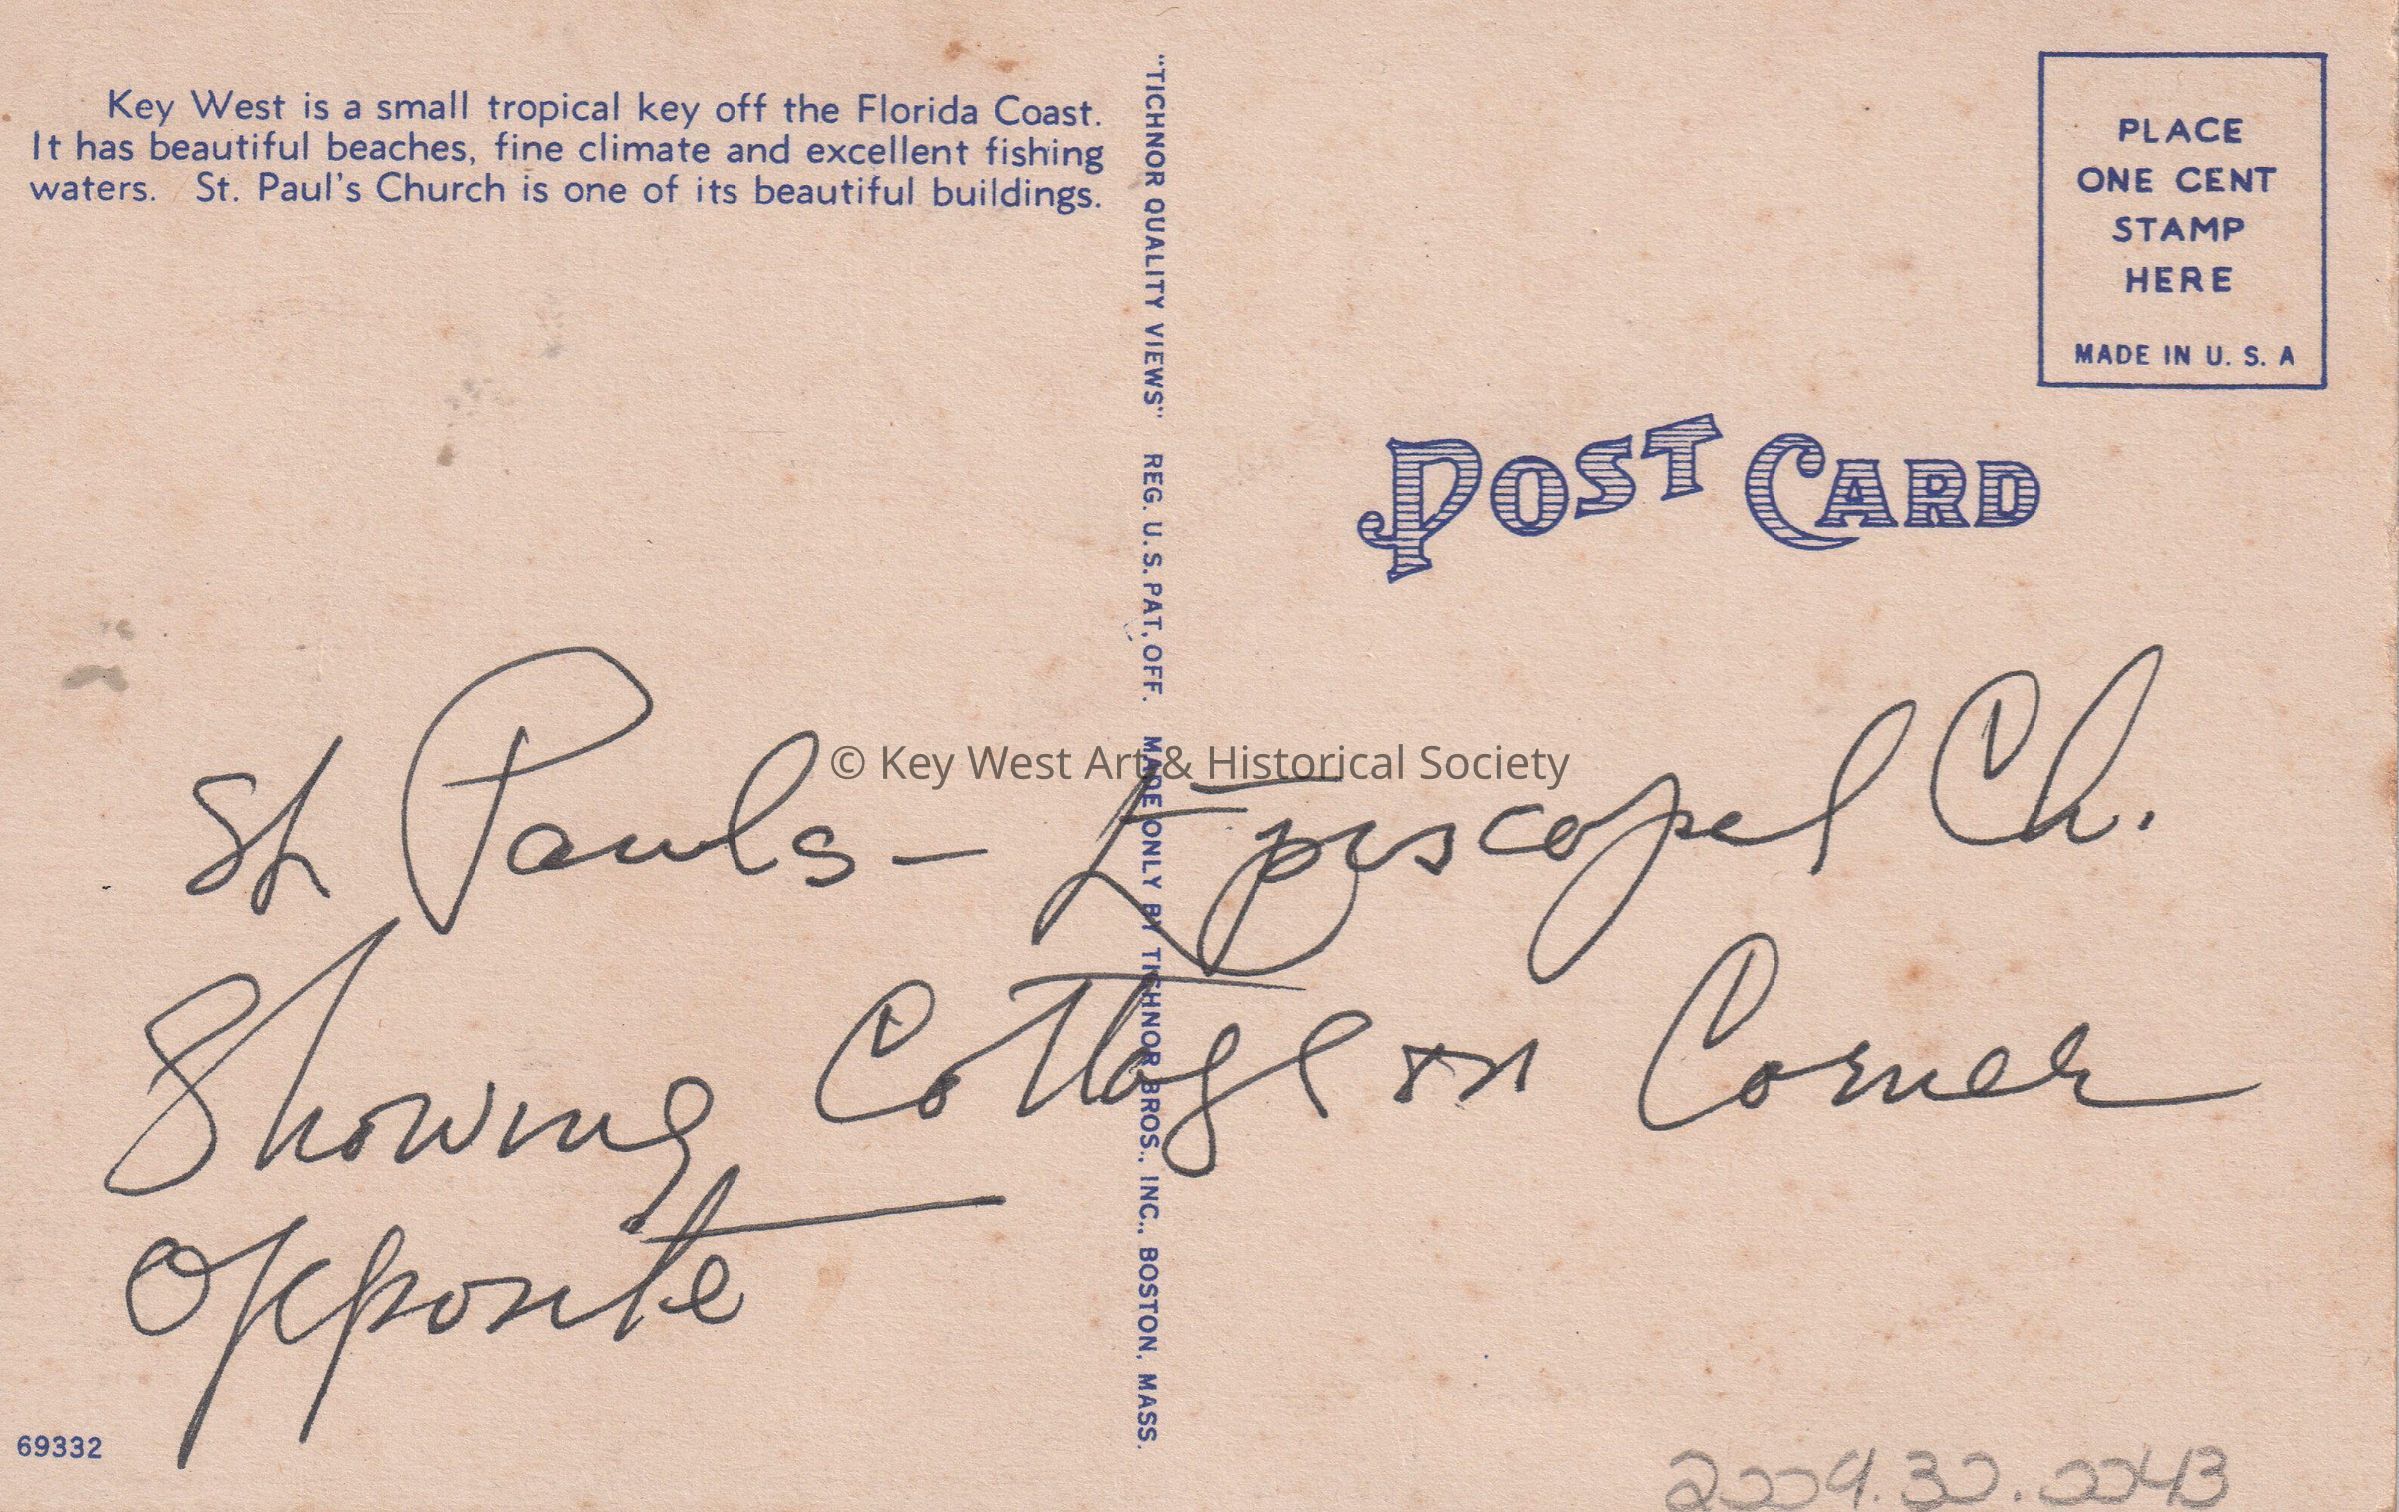 Key West is a small tropical key off the Florida Coast.
It has beautiful beaches, fine climate and excellent fishing
waters. St. Paul's Church is one of its beautiful buildings.
"TICHNOR QUALITY VIEWS" REG. U.S. PAT. OFF. MADE ONLY BY TICHNOR BROS., INC., BOSTON, MASS.
PLACE
ONE CENT
STAMP
HERE
MADE IN U. S. A
POST CARD
© Key West Art & Historical Society
St Pauls - Episcopel Ch.
Showing Cottage on Corner
opposite
69332
2009.30.0043